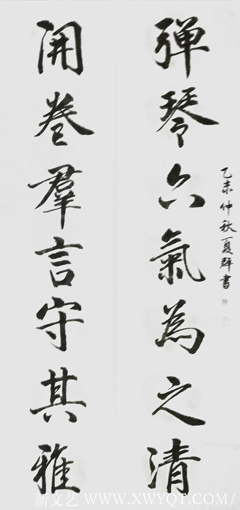 弹琴六氣為之清
乙未仲秋夏群書
開卷羣言守其雅
新文艺 www.xwyqt.com/